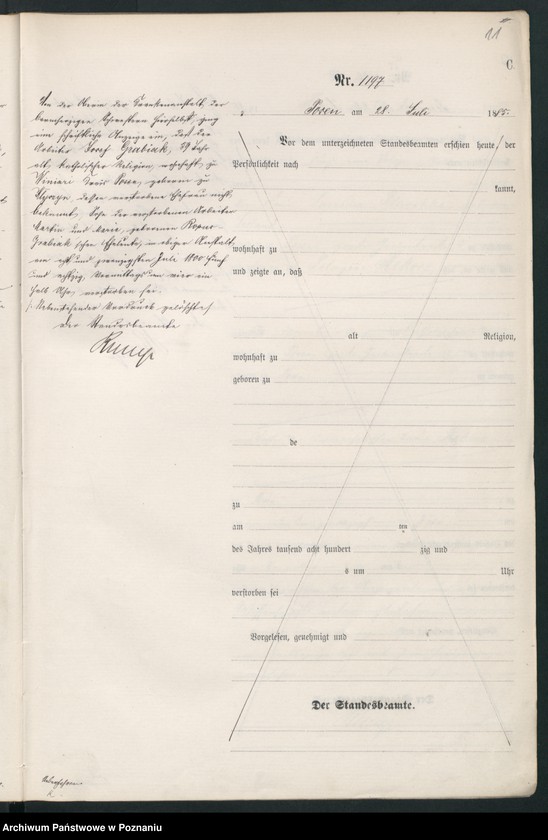 11
C
Nr. 1197
Posen am 28. Juli 1885.
Von der Oberin der Krankenanstalt der
barmherzigen Schwestern hierselbst, ging
eine schriftliche Anzeige ein, daß der
Arbeiter Josef Grabiak, 29 Jahr
alt, katholischer Religion, wohnhaft zu
Winiary Kreis Posen, geboren zu
dessen verstorbene Ehefrau nicht
bekannt, Sohn der verstorbenen Arbeiter
Martin und Maria, geborenen
Grabiak'schen Eheleute, in obiger Anstalt
am acht und zwanzigsten Juli 1800 fünf
und achtzig, Vormittags um vier ein
halb Uhr, verstorben sei.
Nebenstehender Vordruck gelöscht.
Der Standesbeamte
Vor dem unterzeichneten Standesbeamten erschien heute, der
Persönlichkeit nach
kannt,
wohnhaft zu
und zeigte an, daß
alt Religion,
wohnhaft zu
geboren zu
de
zu
am ten
des Jahres tausend acht hundert zig und
s um Uhr
verstorben sei
Vorgelesen, genehmigt und
Der Standesbeamte.
Archiwum Państwowe w Poznaniu